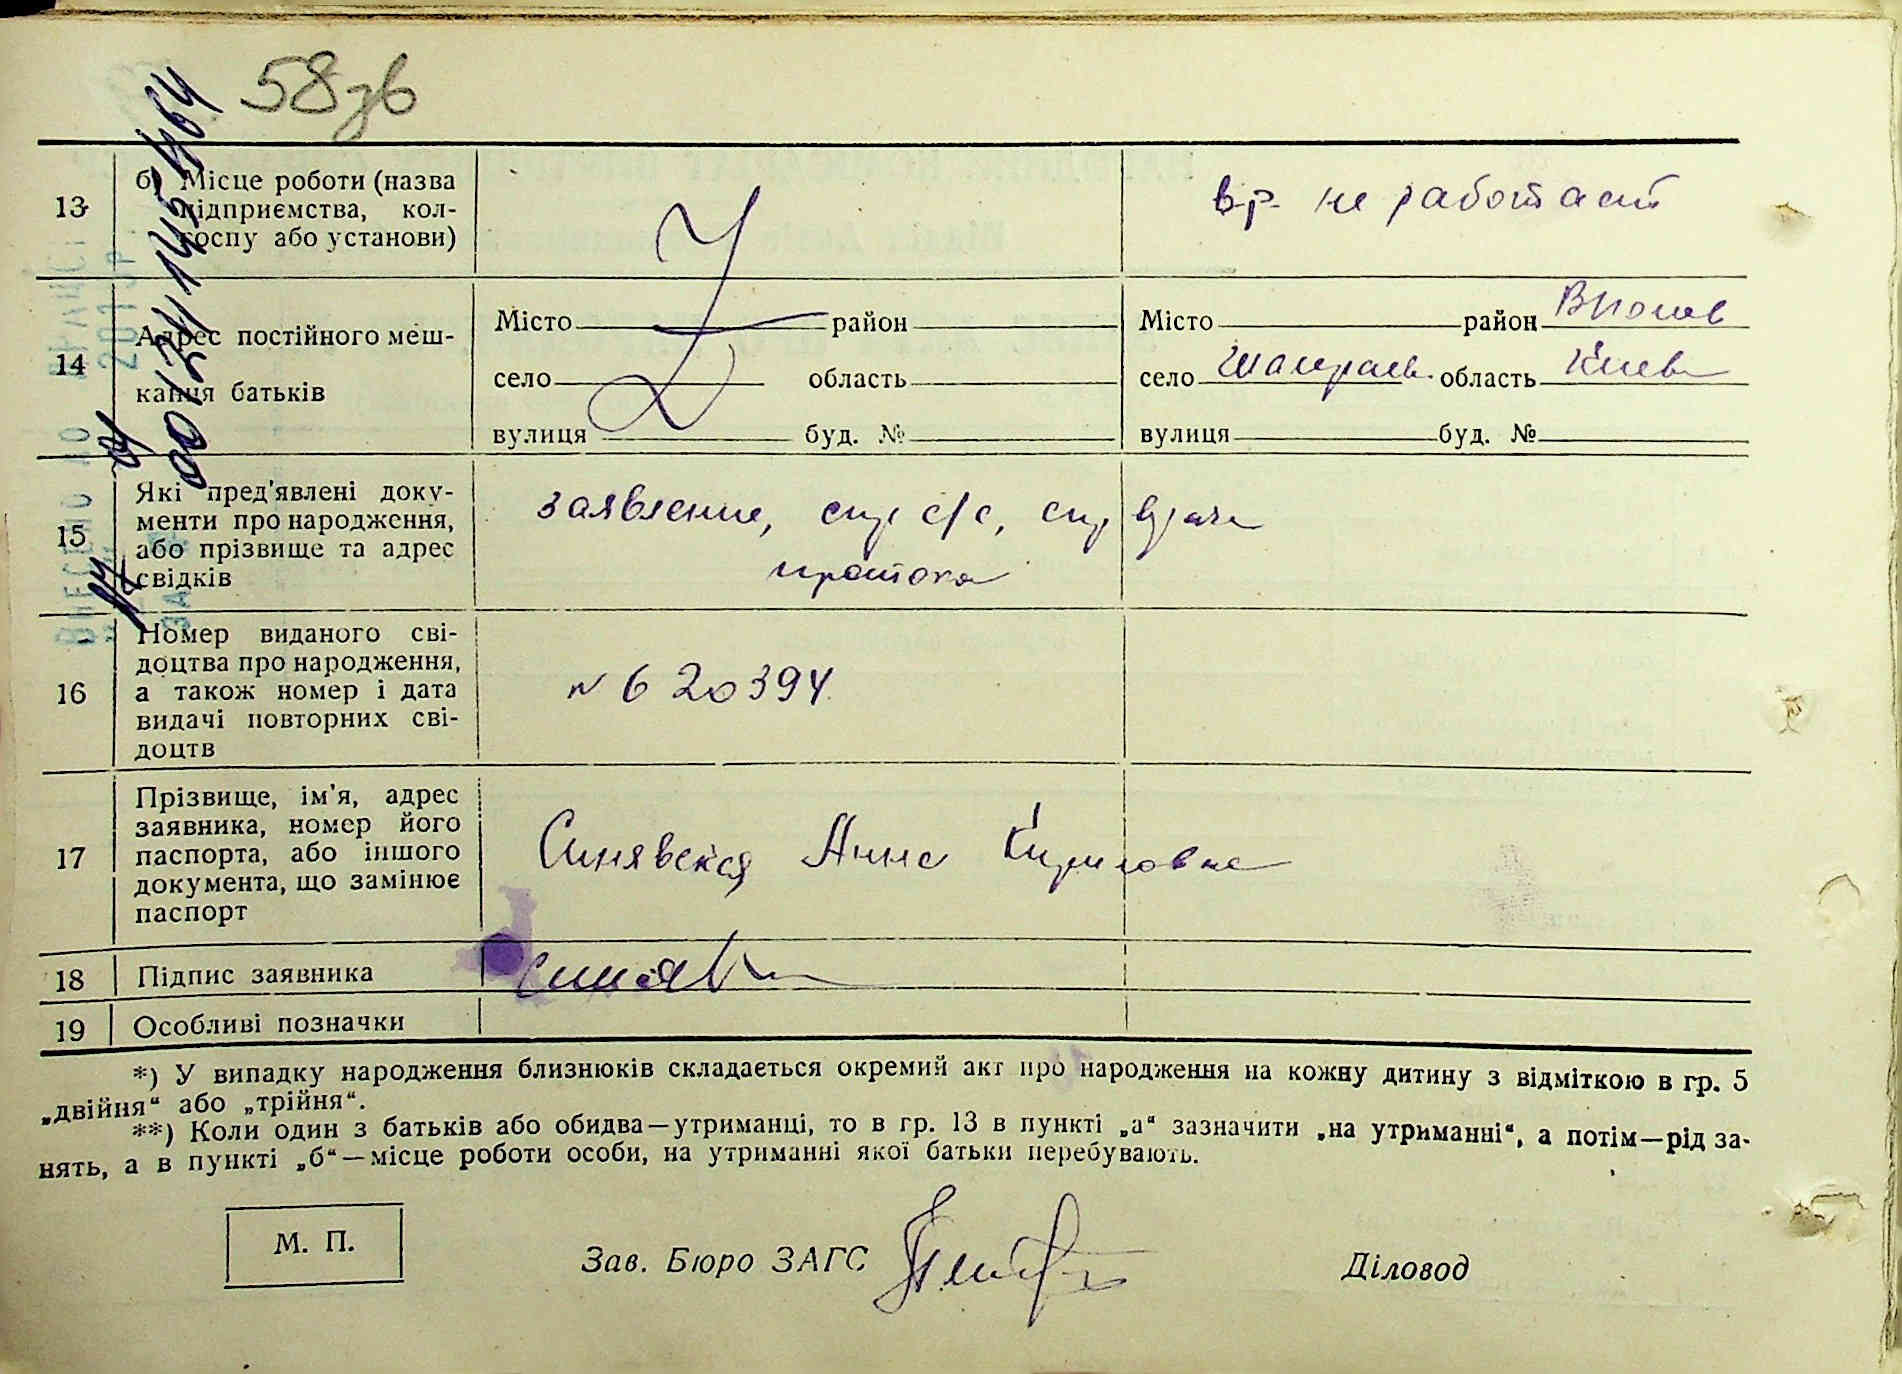 58зв
13 б) Місце роботи (назва
підприємства, кол-
госпу або установи)
вр. не работает
14 Адрес постійного меш-
кання батьків
Місто район
село область
вулиця буд. №
Місто район
село Шамраев. область Киев
вулиця буд. №
15 Які пред'явлені доку-
менти про народження,
або прізвище та адрес
свідків
заявление, спр с/с, спр врача
16 Номер виданого сві-
доцтва про народження,
а також номер і дата
видачі повторних сві-
доцтв
N 620394
17 Прізвище, ім'я, адрес
заявника, номер його
паспорта, або іншого
документа, що замінює
паспорт
Синявская Анна Кириловна
18 Підпис заявника
19 Особливі позначки
*) У випадку народження близнюків складається окремий акт про народження на кожну дитину з відміткою в гр. 5
„двійня“ або „трійня“.
**) Коли один з батьків або обидва—утриманці, то в гр. 13 в пункті „а“ зазначити „на утриманні“, а потім—рід за-
нять, а в пункті „б“—місце роботи особи, на утриманні якої батьки перебувають.
М. П.
Зав. Бюро ЗАГС
Діловод